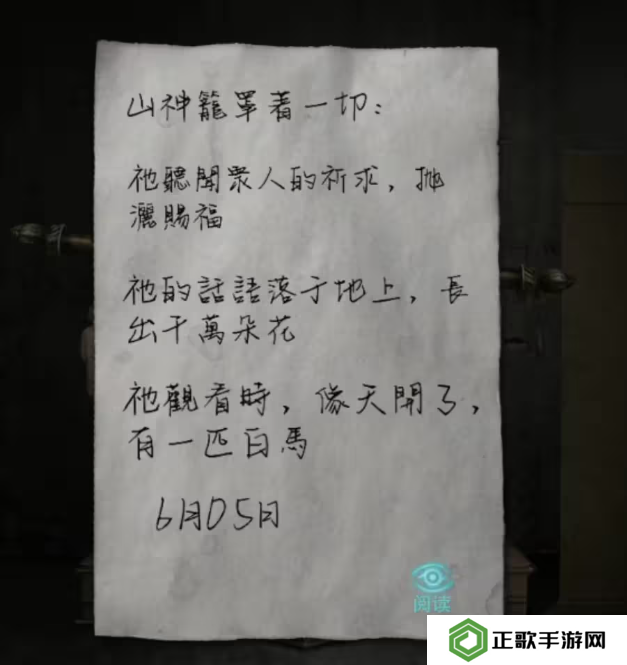 山神籠罩着一切：
祂聽聞眾人的祈求，拋
灑賜福
祂的話語落于地上，長
出千萬朵花
祂觀看時，像天開了，
有一匹白馬
6月05日
阅读
正歌手游网